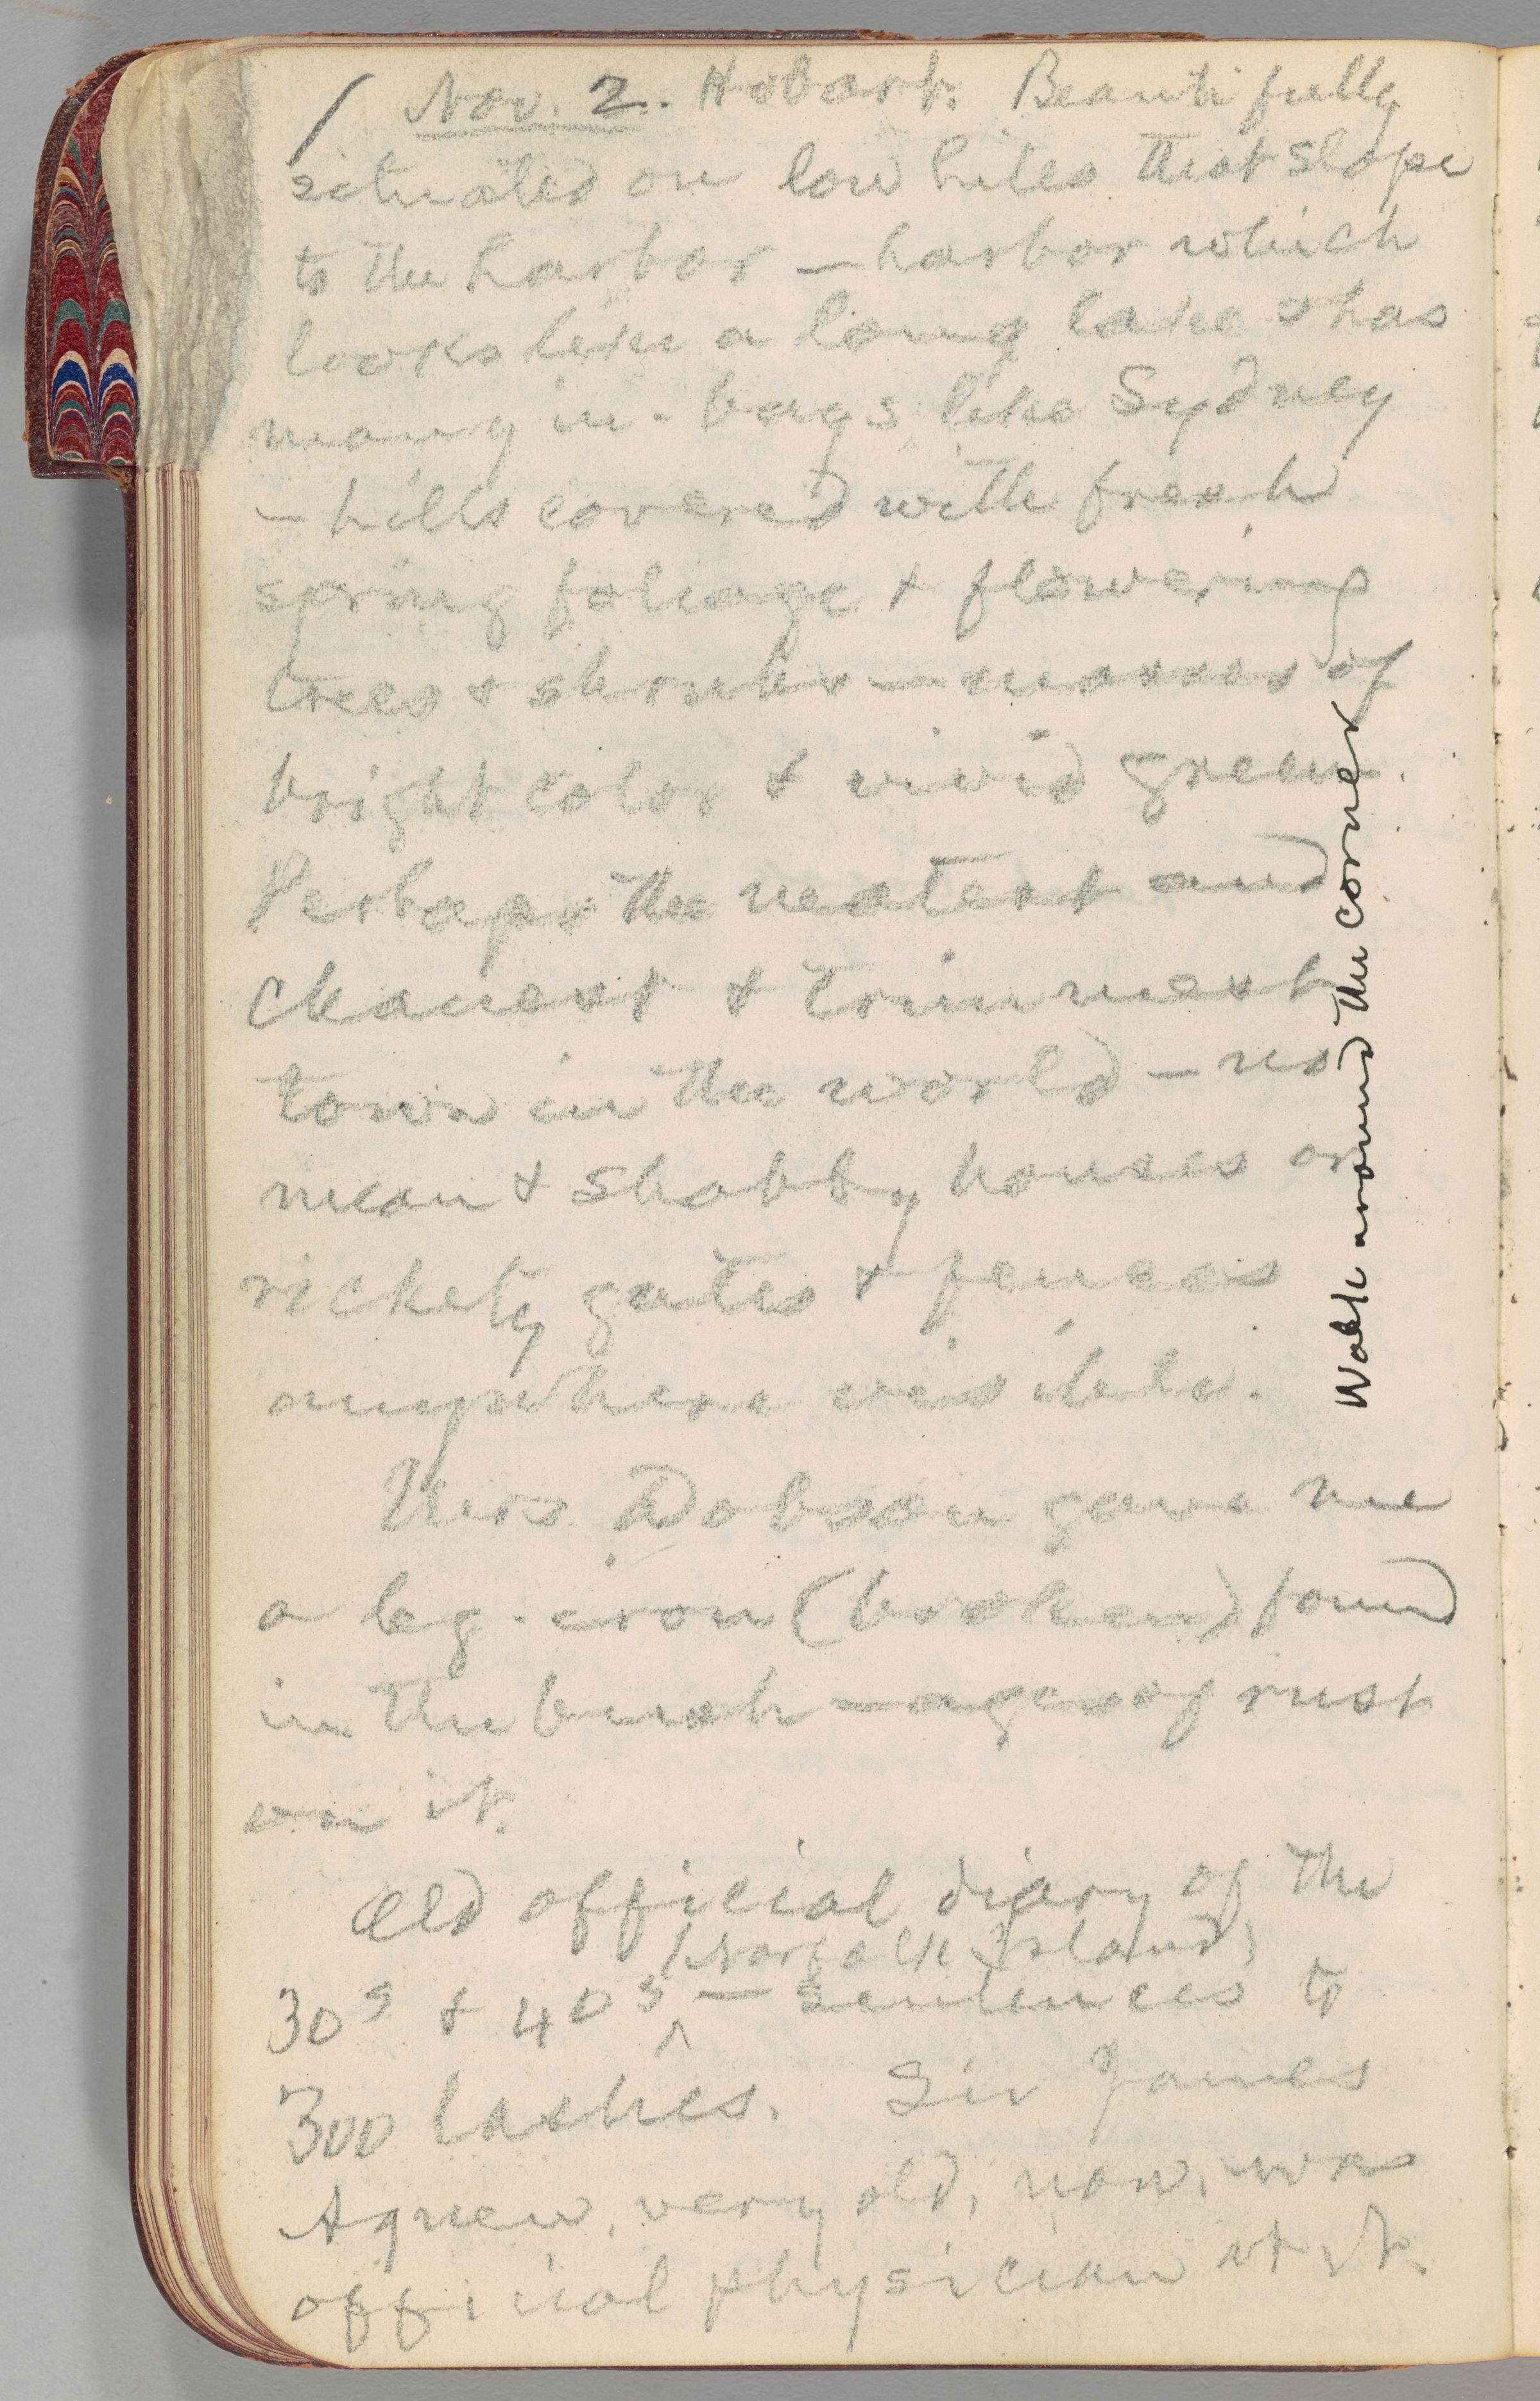 / Nov. 2. Hobart. Beautifully
situated on low hills that slope
to the harbor — harbor which
looks like a long lake & has
many in-bays, like Sydney
— hills covered with fresh
spring foliage & flowering
trees & shrubs — masses of
bright color & vivid green.
Perhaps the neatest and
cleanest & trimmest
town in the world — no
mean & shabby houses or
rickety gates & fences
anywhere visible.
Mrs. Dobson gave me
a leg-iron (broken) found
in the bush — ages of rust
on it.
Old official diary of the
(Norfolk Island)
30s & 40s ^ — sentences to
300 lashes. Sir James
Agnew, very old, now, was
official physician at it.
Walk around the corner